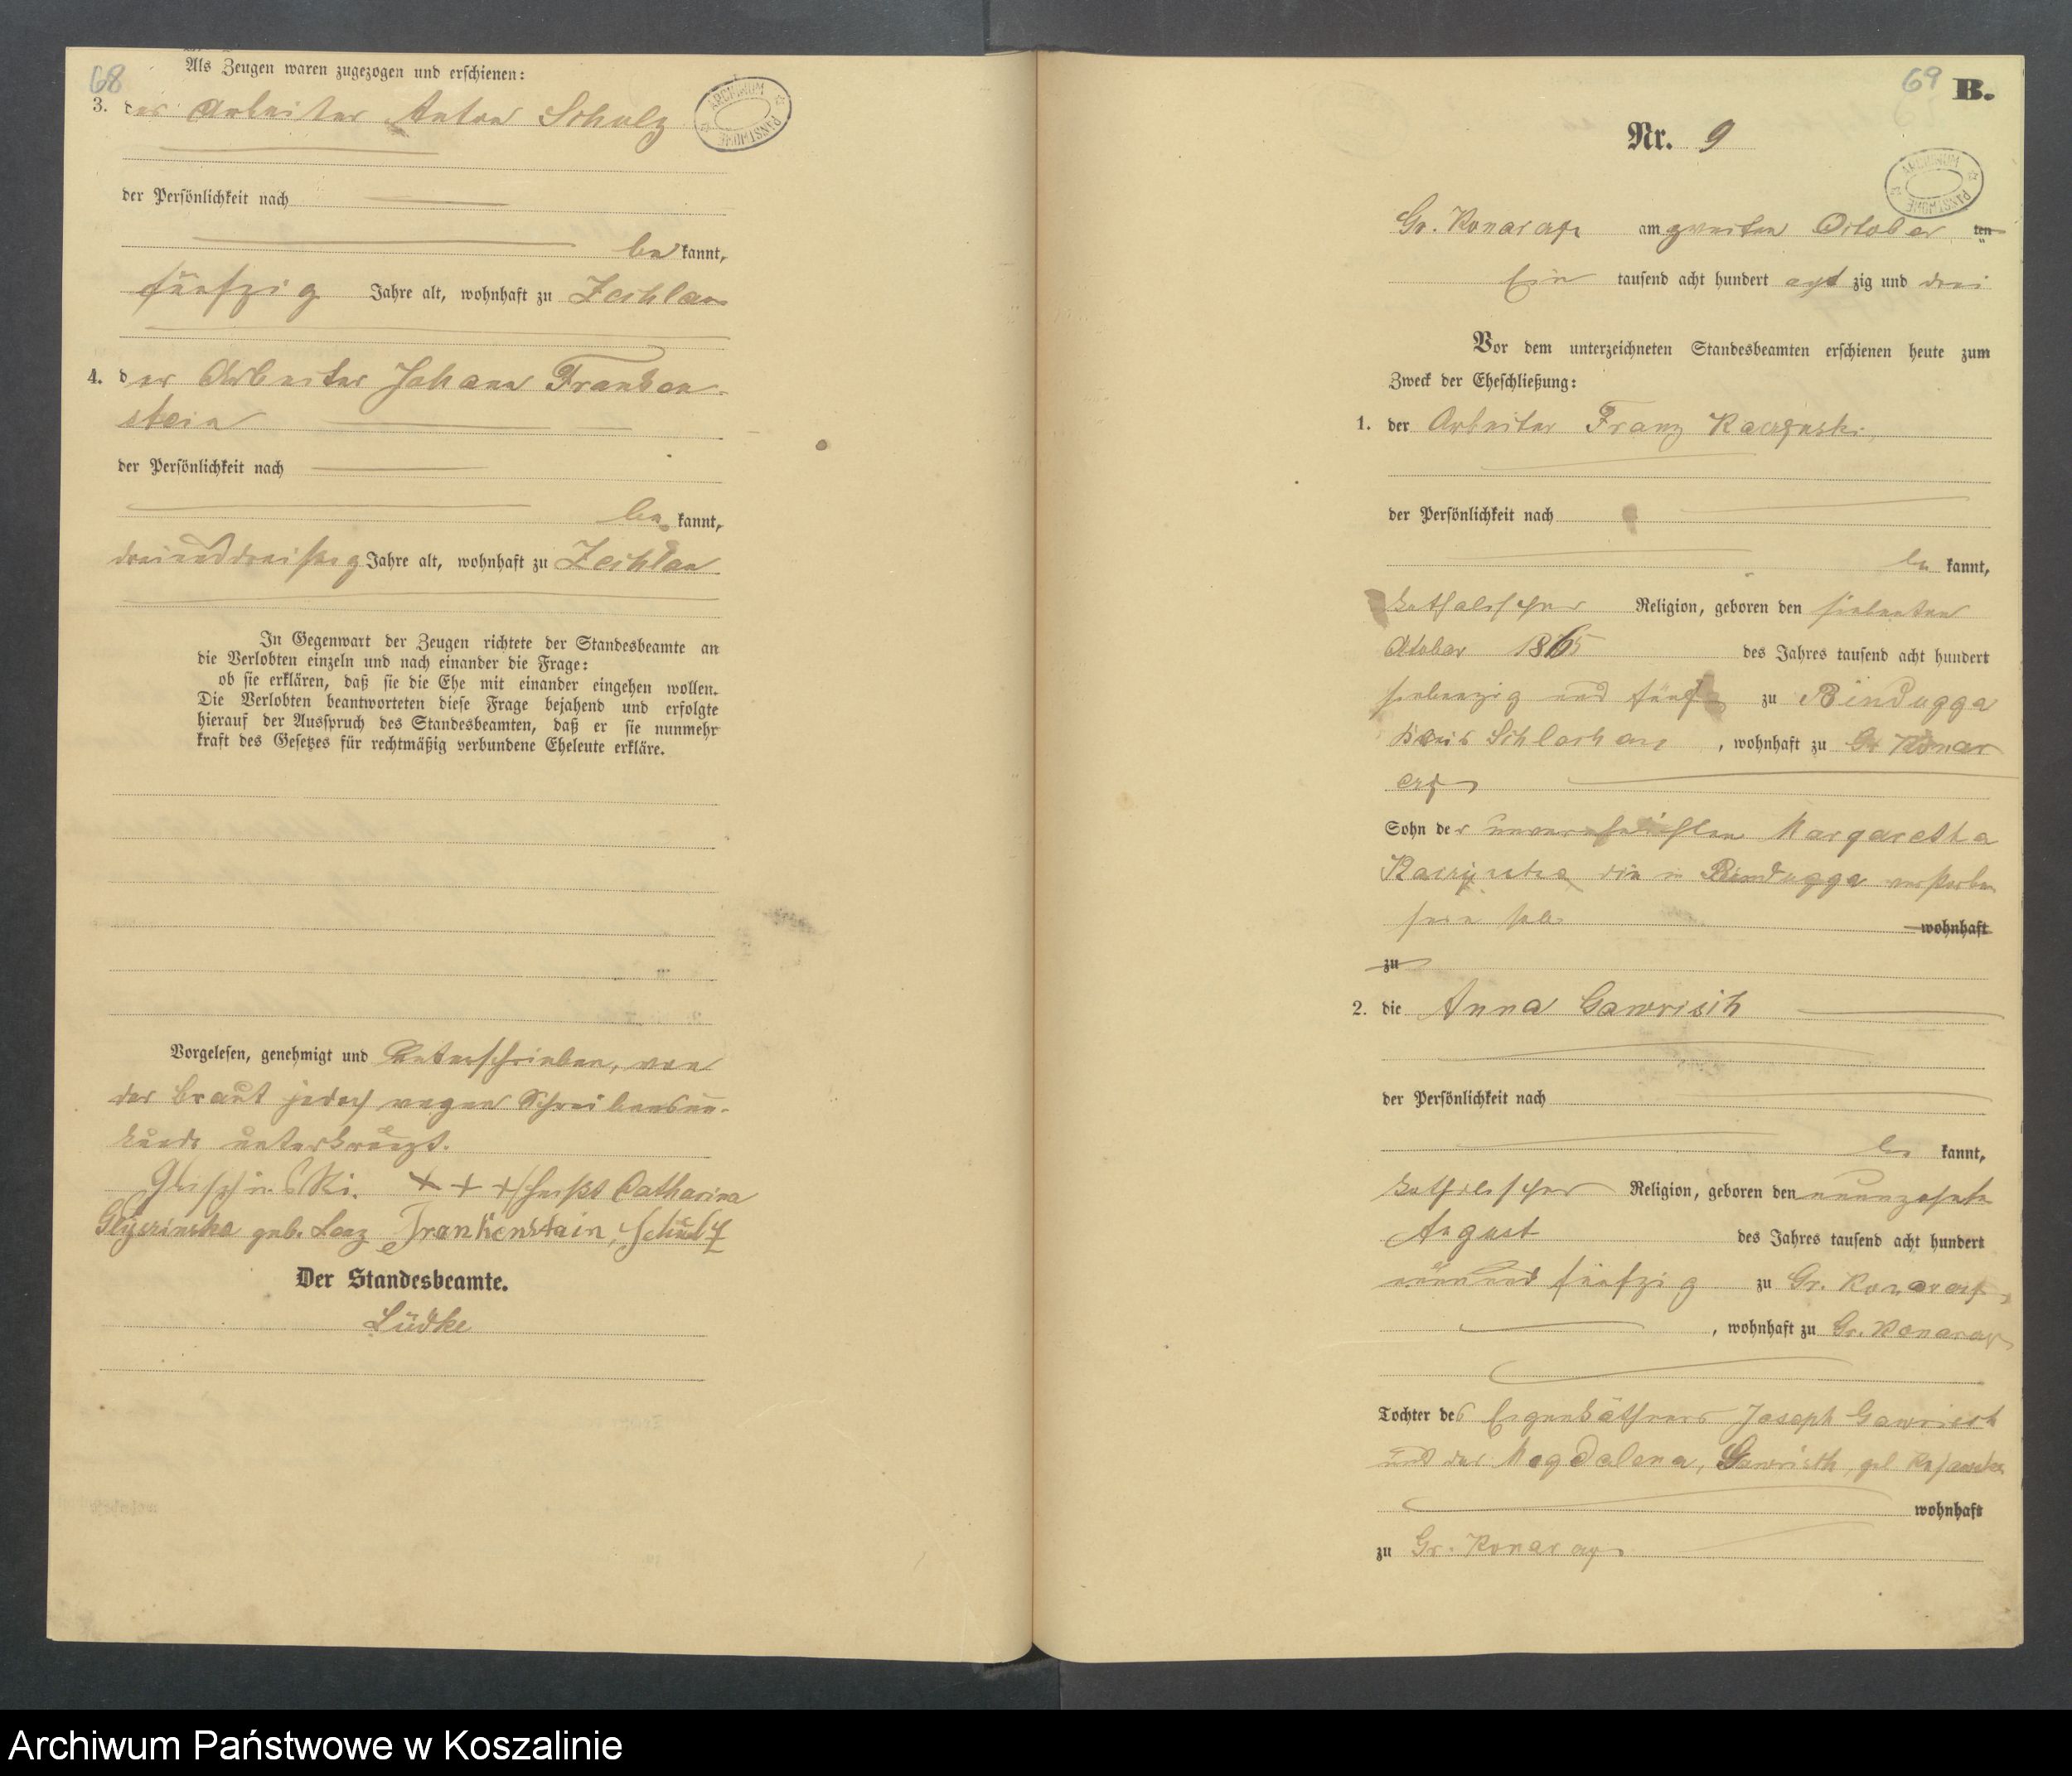 68
Als Zeugen waren zugezogen und erschienen:
3. der Arbeiter Anton Schulz
ARCHIWUM PAŃSTWOWE
der Persönlichkeit nach
be kannt,
fünfzig Jahre alt, wohnhaft zu Zechlau
4. der Arbeiter Johann Franken-
stein
der Persönlichkeit nach
be kannt,
dreiunddreißig Jahre alt, wohnhaft zu Zechlau
In Gegenwart der Zeugen richtete der Standesbeamte an
die Verlobten einzeln und nach einander die Frage:
ob sie erklären, daß sie die Ehe mit einander eingehen wollen.
Die Verlobten beantworteten diese Frage bejahend und erfolgte
hierauf der Ausspruch des Standesbeamten, daß er sie nunmehr
kraft des Gesetzes für rechtmäßig verbundene Eheleute erkläre.
Vorgelesen, genehmigt und unterschrieben, von
der Braut jedoch wegen Schreibensun-
kunde unterkreuzt.
+++ heißt Catharina
geb. Frankenstein, Schulz
Der Standesbeamte.
Lüdke
69 B.
Nr. 9
ARCHIWUM PAŃSTWOWE
Gr. Konarczyn am zweiten October ten
Ein tausend acht hundert acht zig und drei
Vor dem unterzeichneten Standesbeamten erschienen heute zum
Zweck der Eheschließung:
1. der Arbeiter Franz
der Persönlichkeit nach
be kannt,
katholischer Religion, geboren den siebenten
October 1865 des Jahres tausend acht hundert
und fünf zu Bindugga
Kreis Schlochau, wohnhaft zu Gr Konar
czyn
Sohn der unverehelichten Margaretha
die in Bindugga verstorben
sein soll. wohnhaft
zu
2. die Anna Gawrisch
der Persönlichkeit nach
be kannt,
katholischer Religion, geboren den neunzehnten
August des Jahres tausend acht hundert
neun und fünfzig zu Gr. Konarczyn
, wohnhaft zu Gr. Konarczyn
Tochter des Eigenkäthners Joseph Gawrisch
und der Magdalena, Gawrisch, geb
wohnhaft
zu Gr. Konarczyn
Archiwum Państwowe w Koszalinie